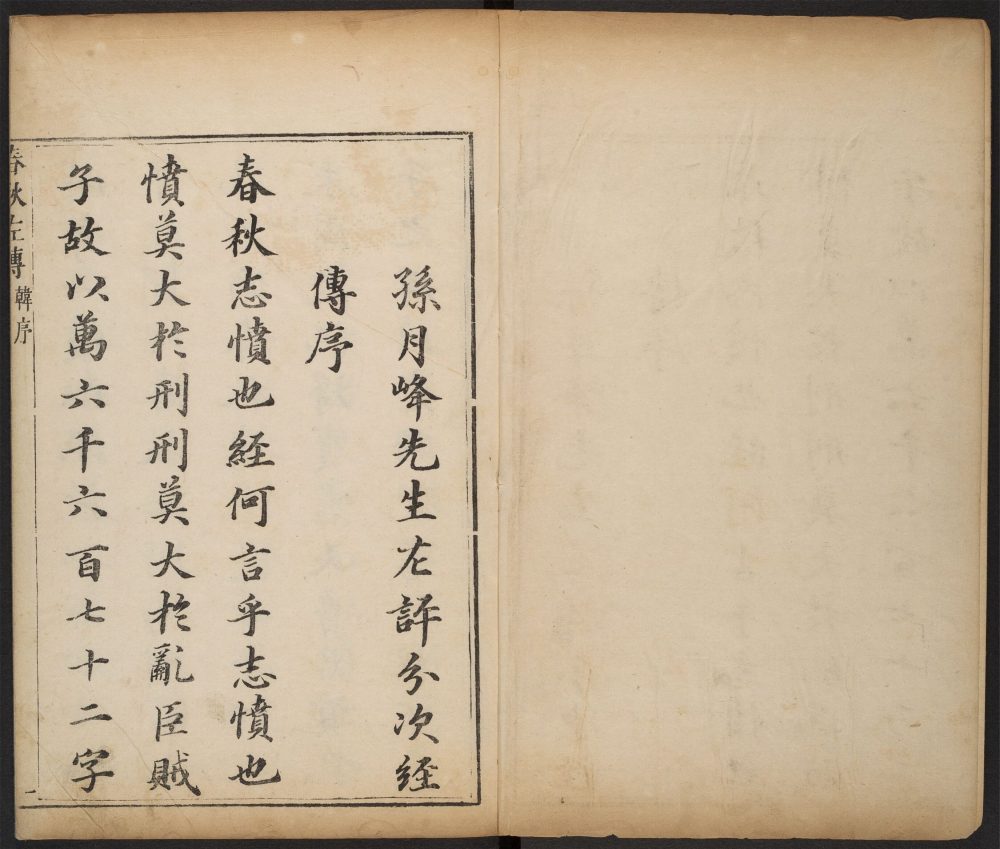 孫月峰先生左評分次經
傳序
春秋志憤也經何言乎志憤也
憤莫大於刑刑莫大於亂臣賊
子故以萬六千六百七十二字
春秋左傳 韓序 一